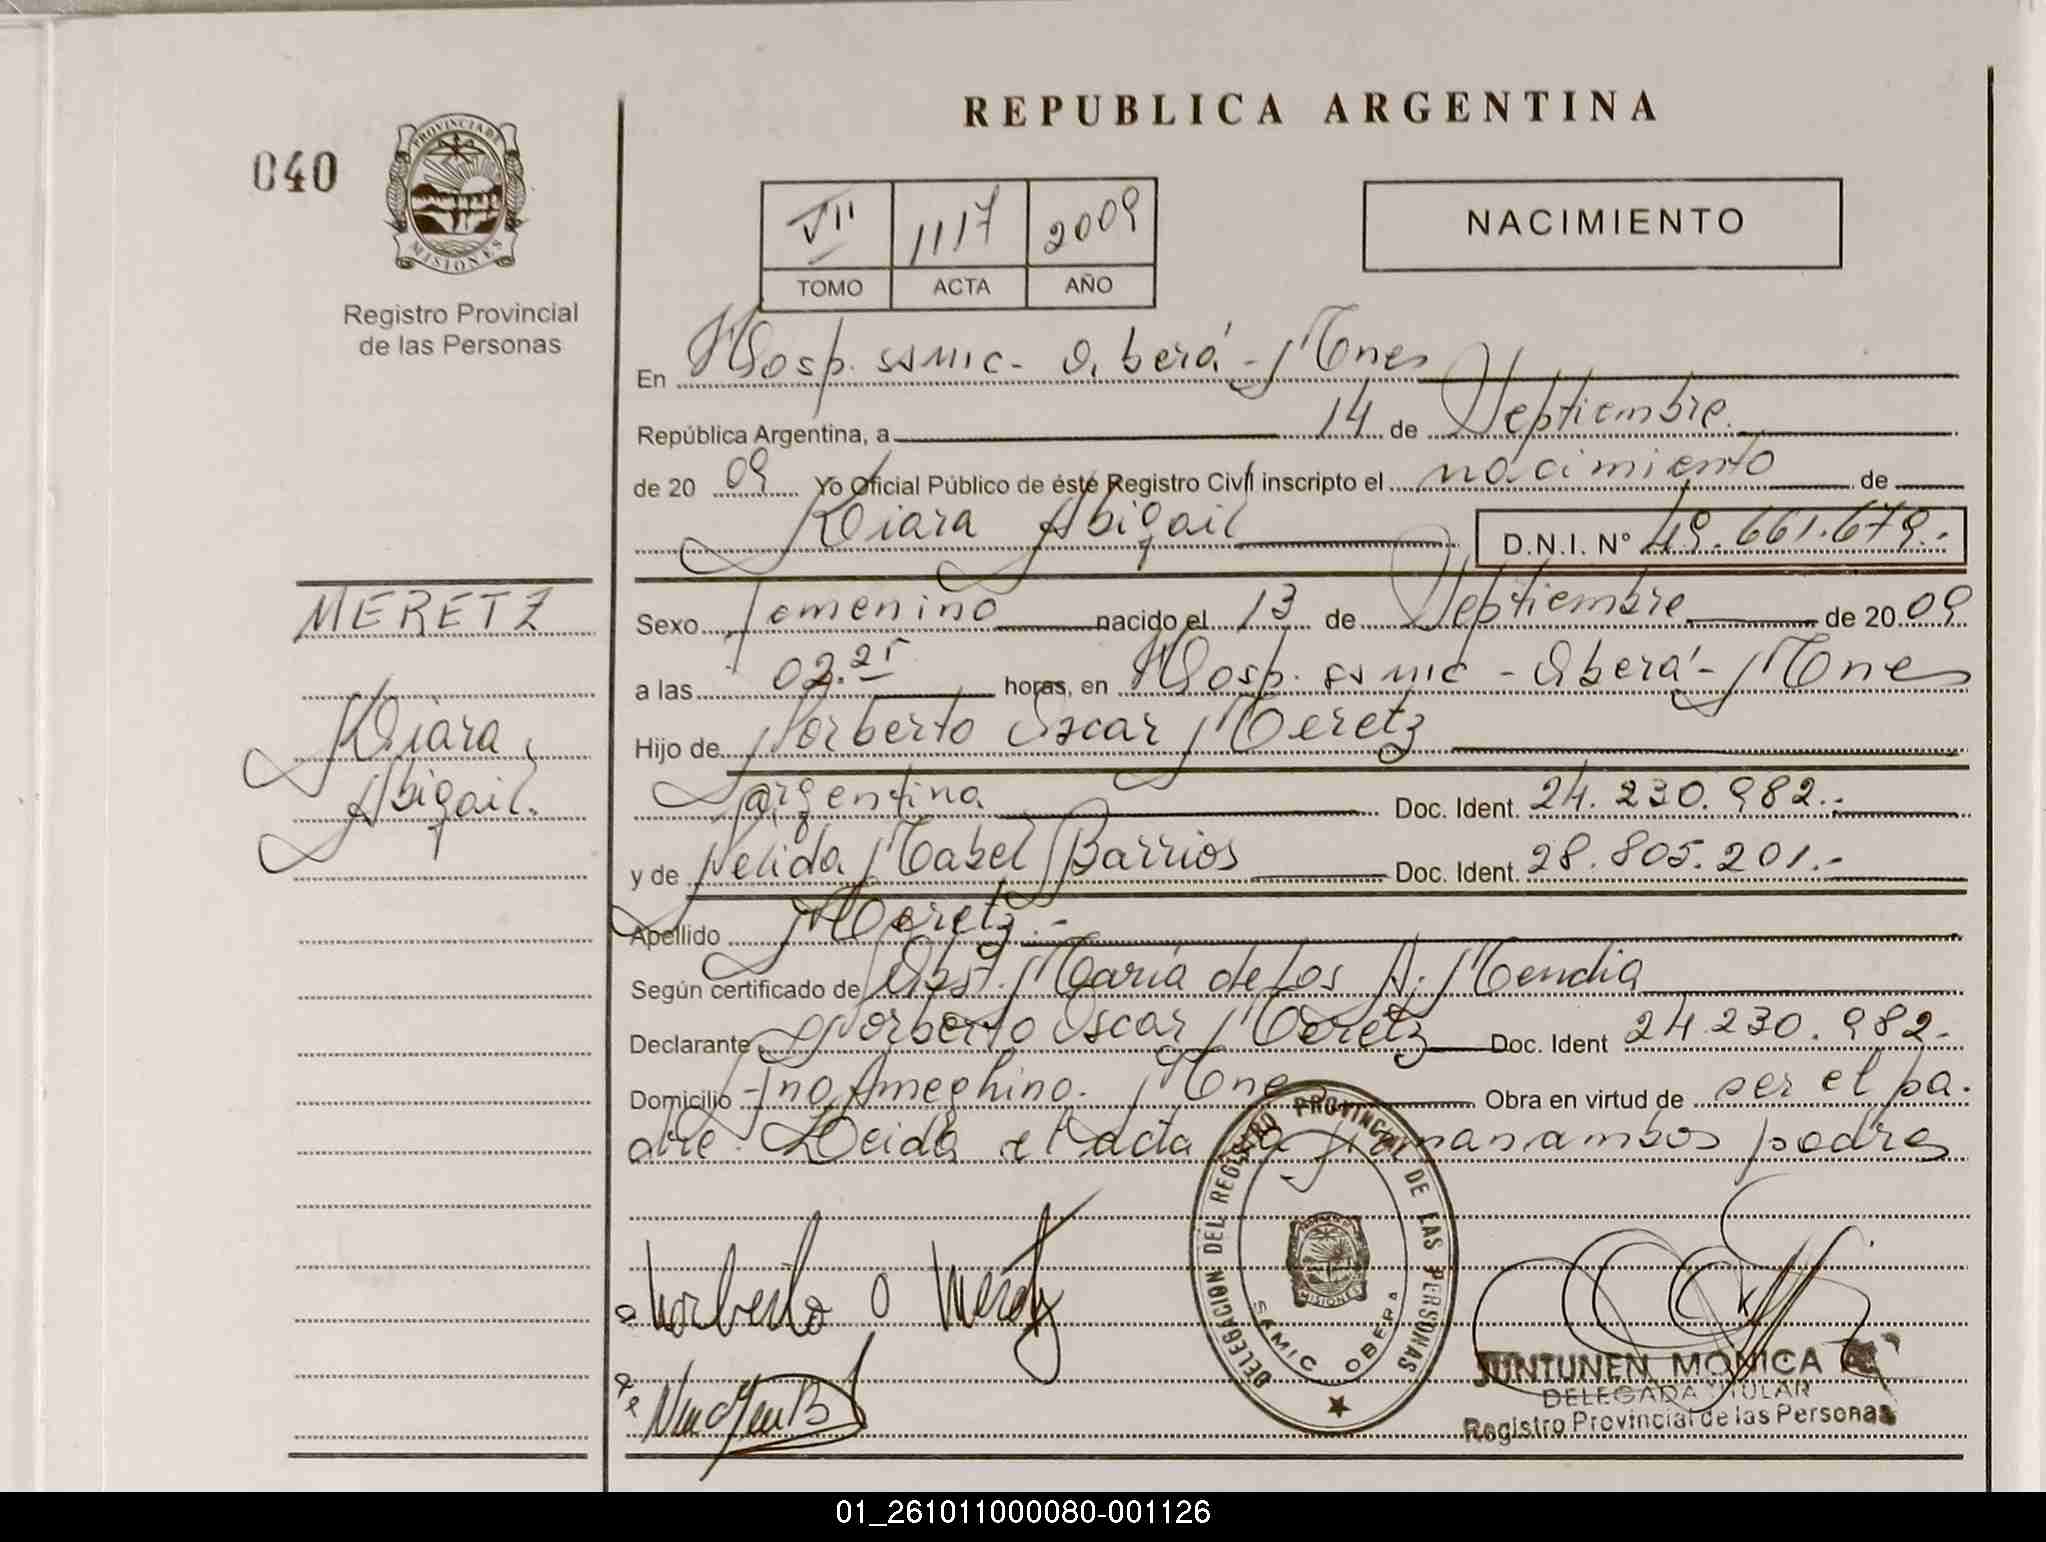 REPUBLICA ARGENTINA
040
PROVINCIA DE
MISIONES
Registro Provincial
de las Personas
VII 1117 2009
TOMO ACTA AÑO
NACIMIENTO
En Hosp. ssmic - Oberá - Mnes
República Argentina, a 14 de Septiembre.
de 20 09 Yo Oficial Público de éste Registro Civil inscripto el nacimiento de
Kiara Abigail D.N.I. N° 49.661.679.-
MERETZ
Kiara
Abigail.
Sexo femenino nacido el 13 de Septiembre de 20 09
a las 02.25 horas, en Hosp. ssmic - Oberá - Mnes
Hijo de Norberto Oscar Meretz
argentina Doc. Ident. 24.230.982.-
y de Nelida Mabel Barrios Doc. Ident. 28.805.201.-
Apellido Meretz.-
Según certificado de Obst. María de Los A. Mendia
Declarante Norberto Oscar Meretz Doc. Ident 24.230.982.-
Domicilio Fno Ameghino. Mnes Obra en virtud de ser el pa-
dre. Leida el acta la firman ambos padres
DELEGACION DEL REGISTRO PROVINCIAL DE LAS PERSONAS
MISIONES
SAMIC OBERA
Norberto O Meretz
JUNTUNEN MONICA
DELEGADA TITULAR
Registro Provincial de las Personas
01_261011000080-001126